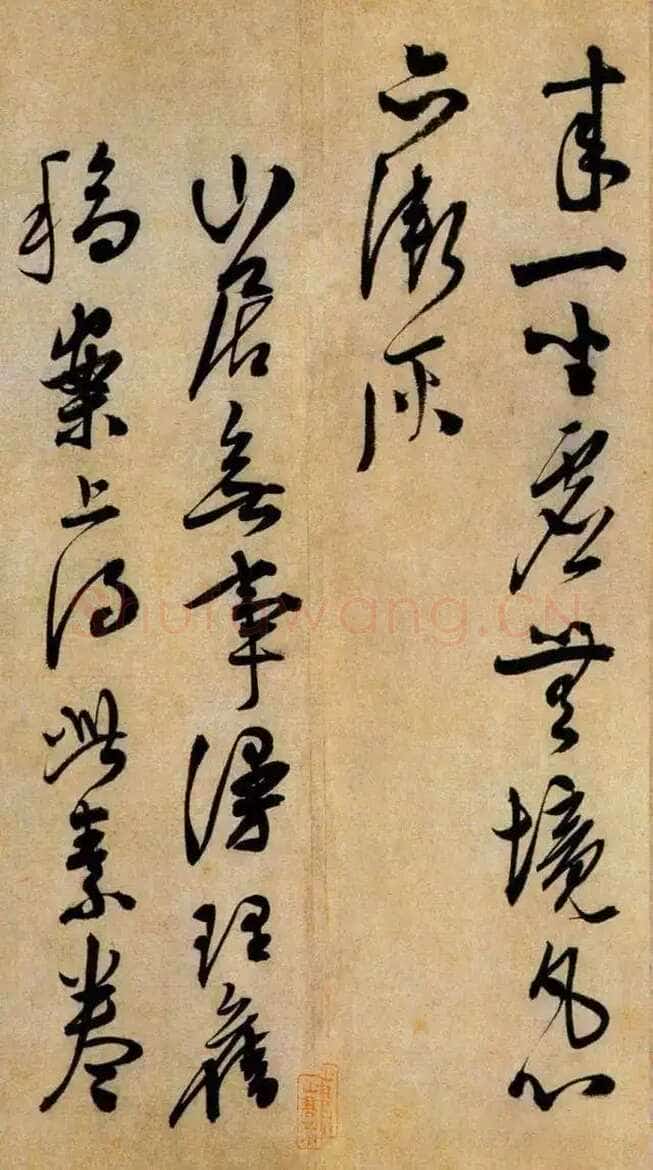 来一坐虚無境凡心
亦漸灰
山居無事漫理舊
稿案上得此素卷
Shufawang.CN